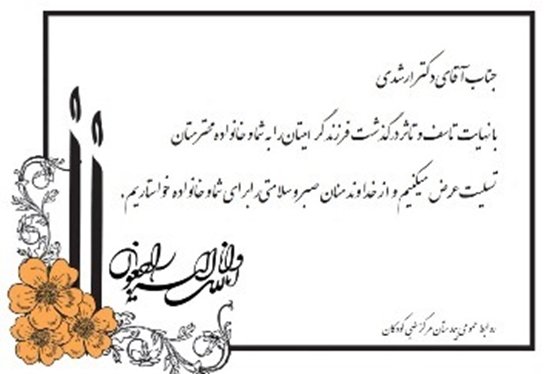 جناب آقای دکتر ارشدی
با نهایت تاسف و تاثر درگذشت فرزند گرامیتان را به شما و خانواده محترمتان
تسلیت عرض میکنیم و از خداوند منان صبر و سلامتی را برای شما و خانواده خواستاریم.
انا لله و انا الیه راجعون
روابط عمومی بیمارستان مرکز طبی کودکان